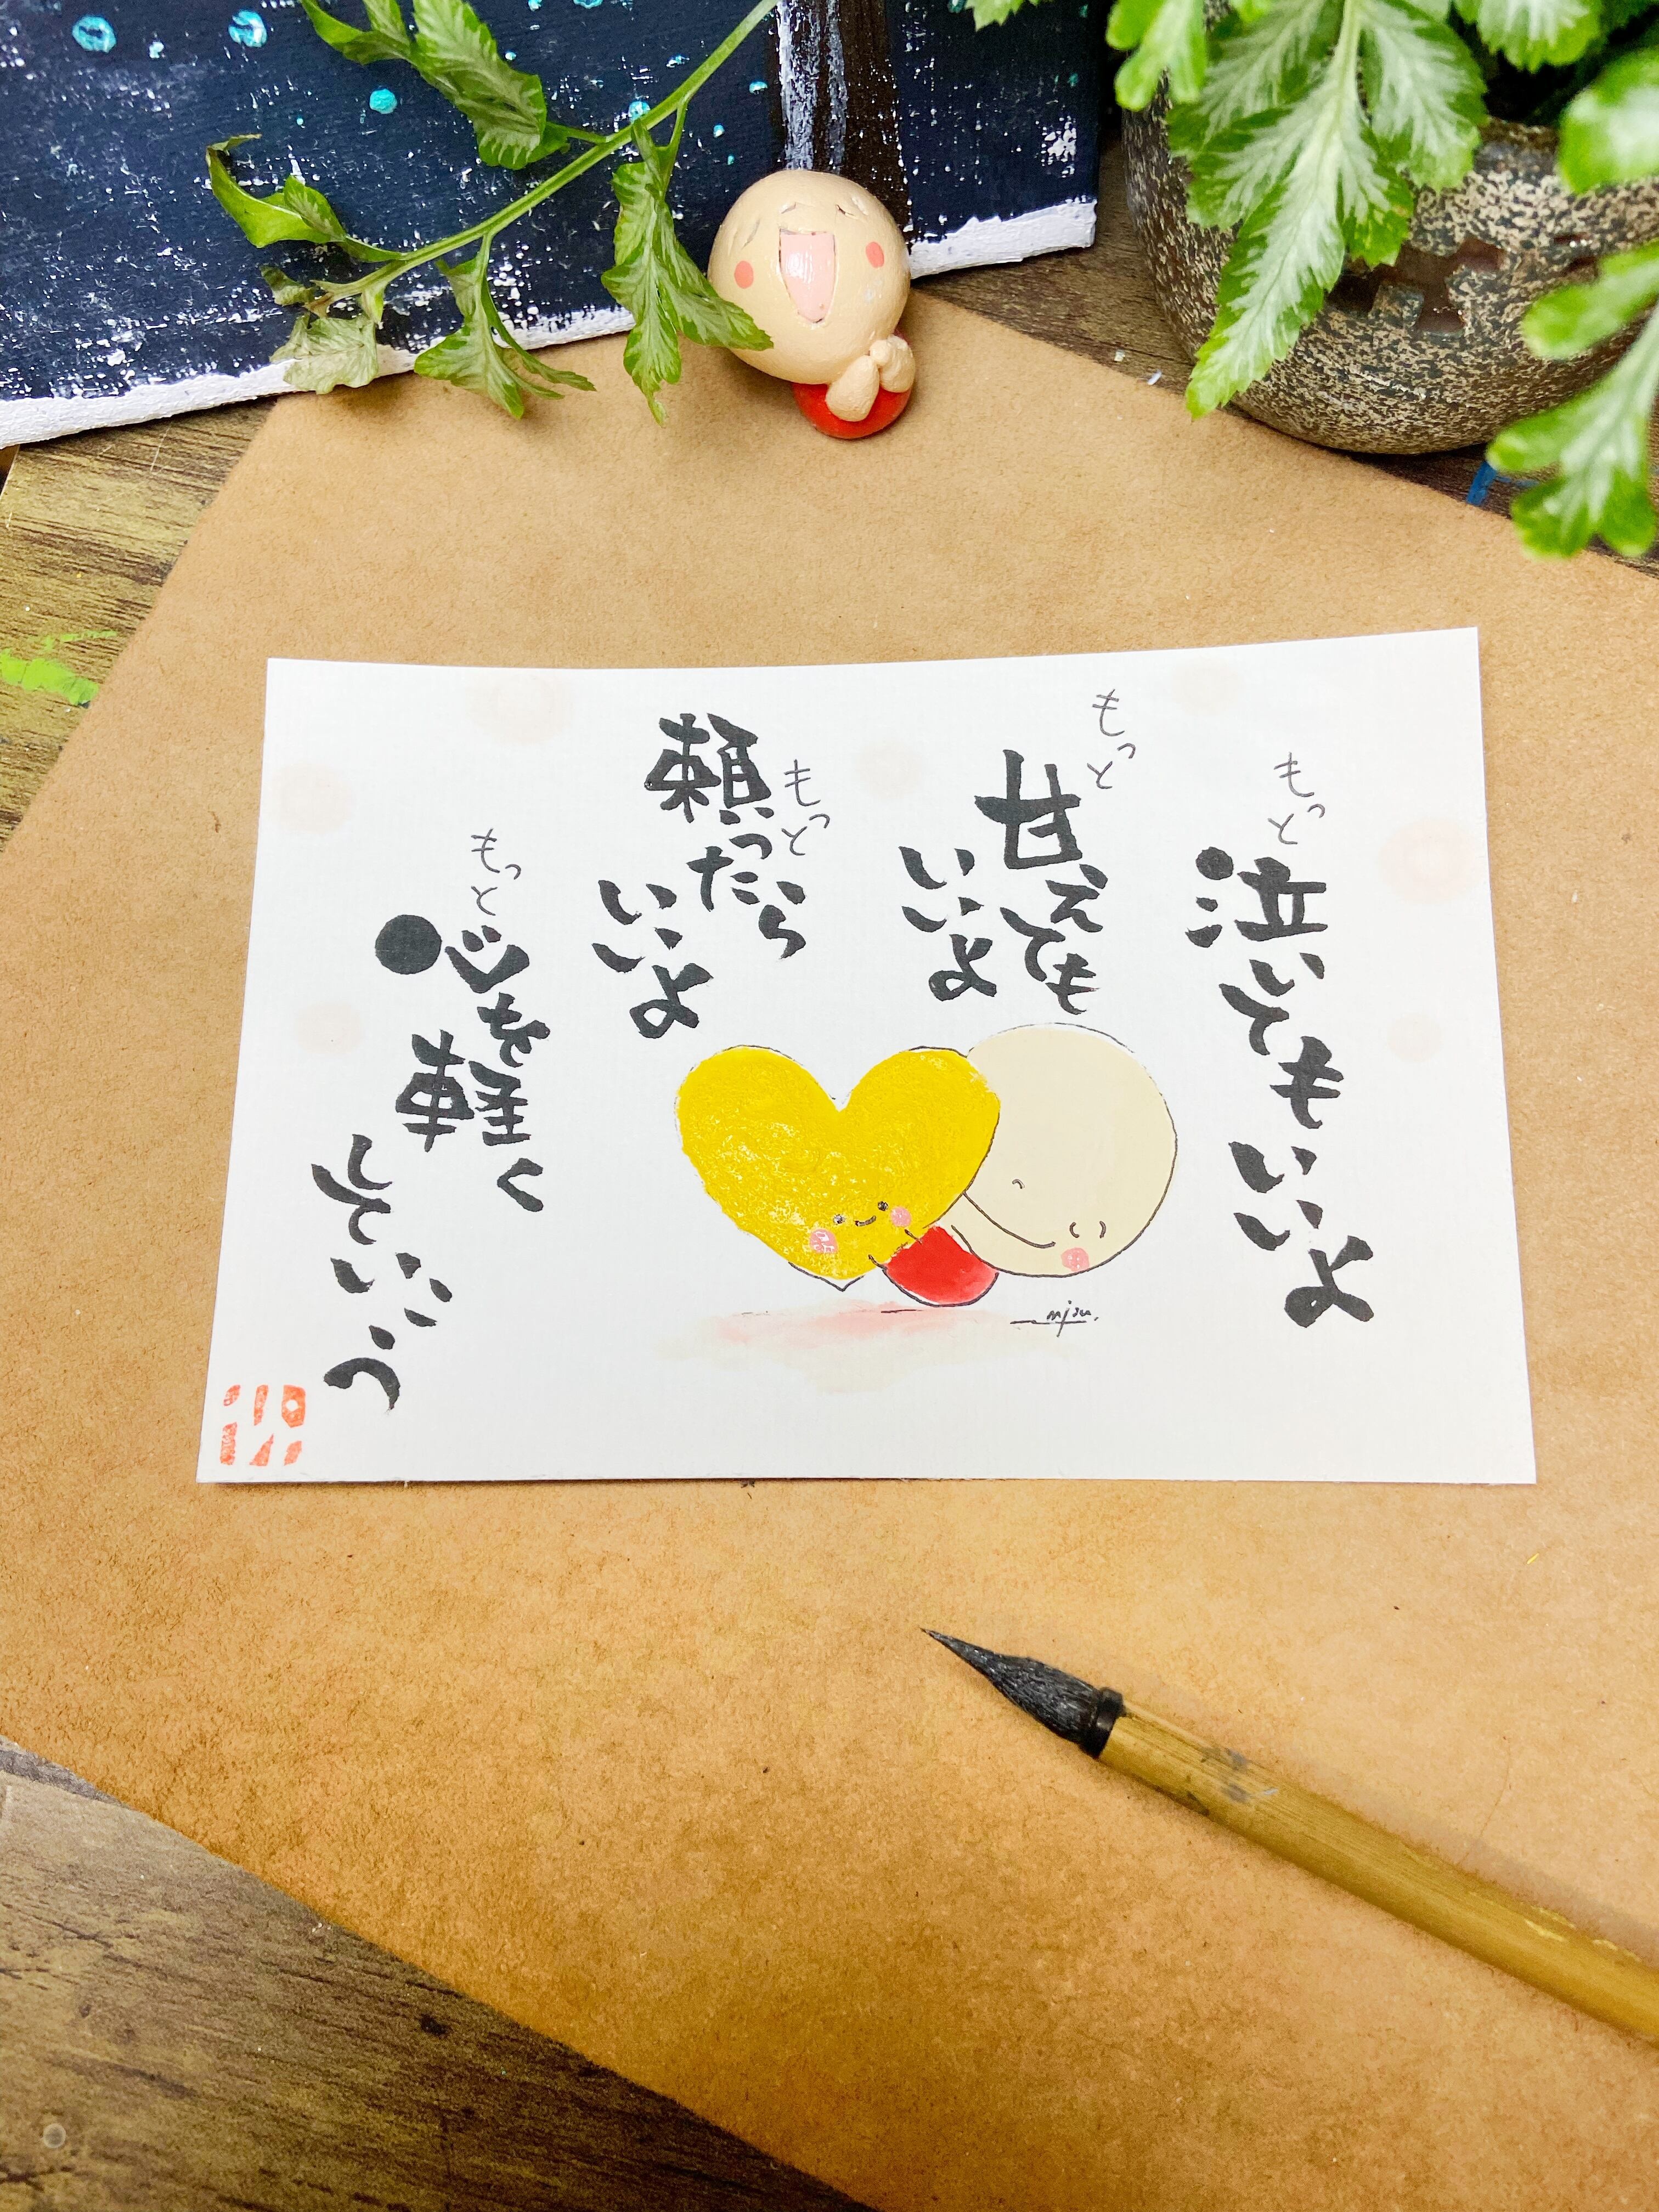 もっと
泣いてもいいよ
もっと
甘えても
いいよ
もっと
頼ったら
いいよ
もっと
心を
軽く
していこう